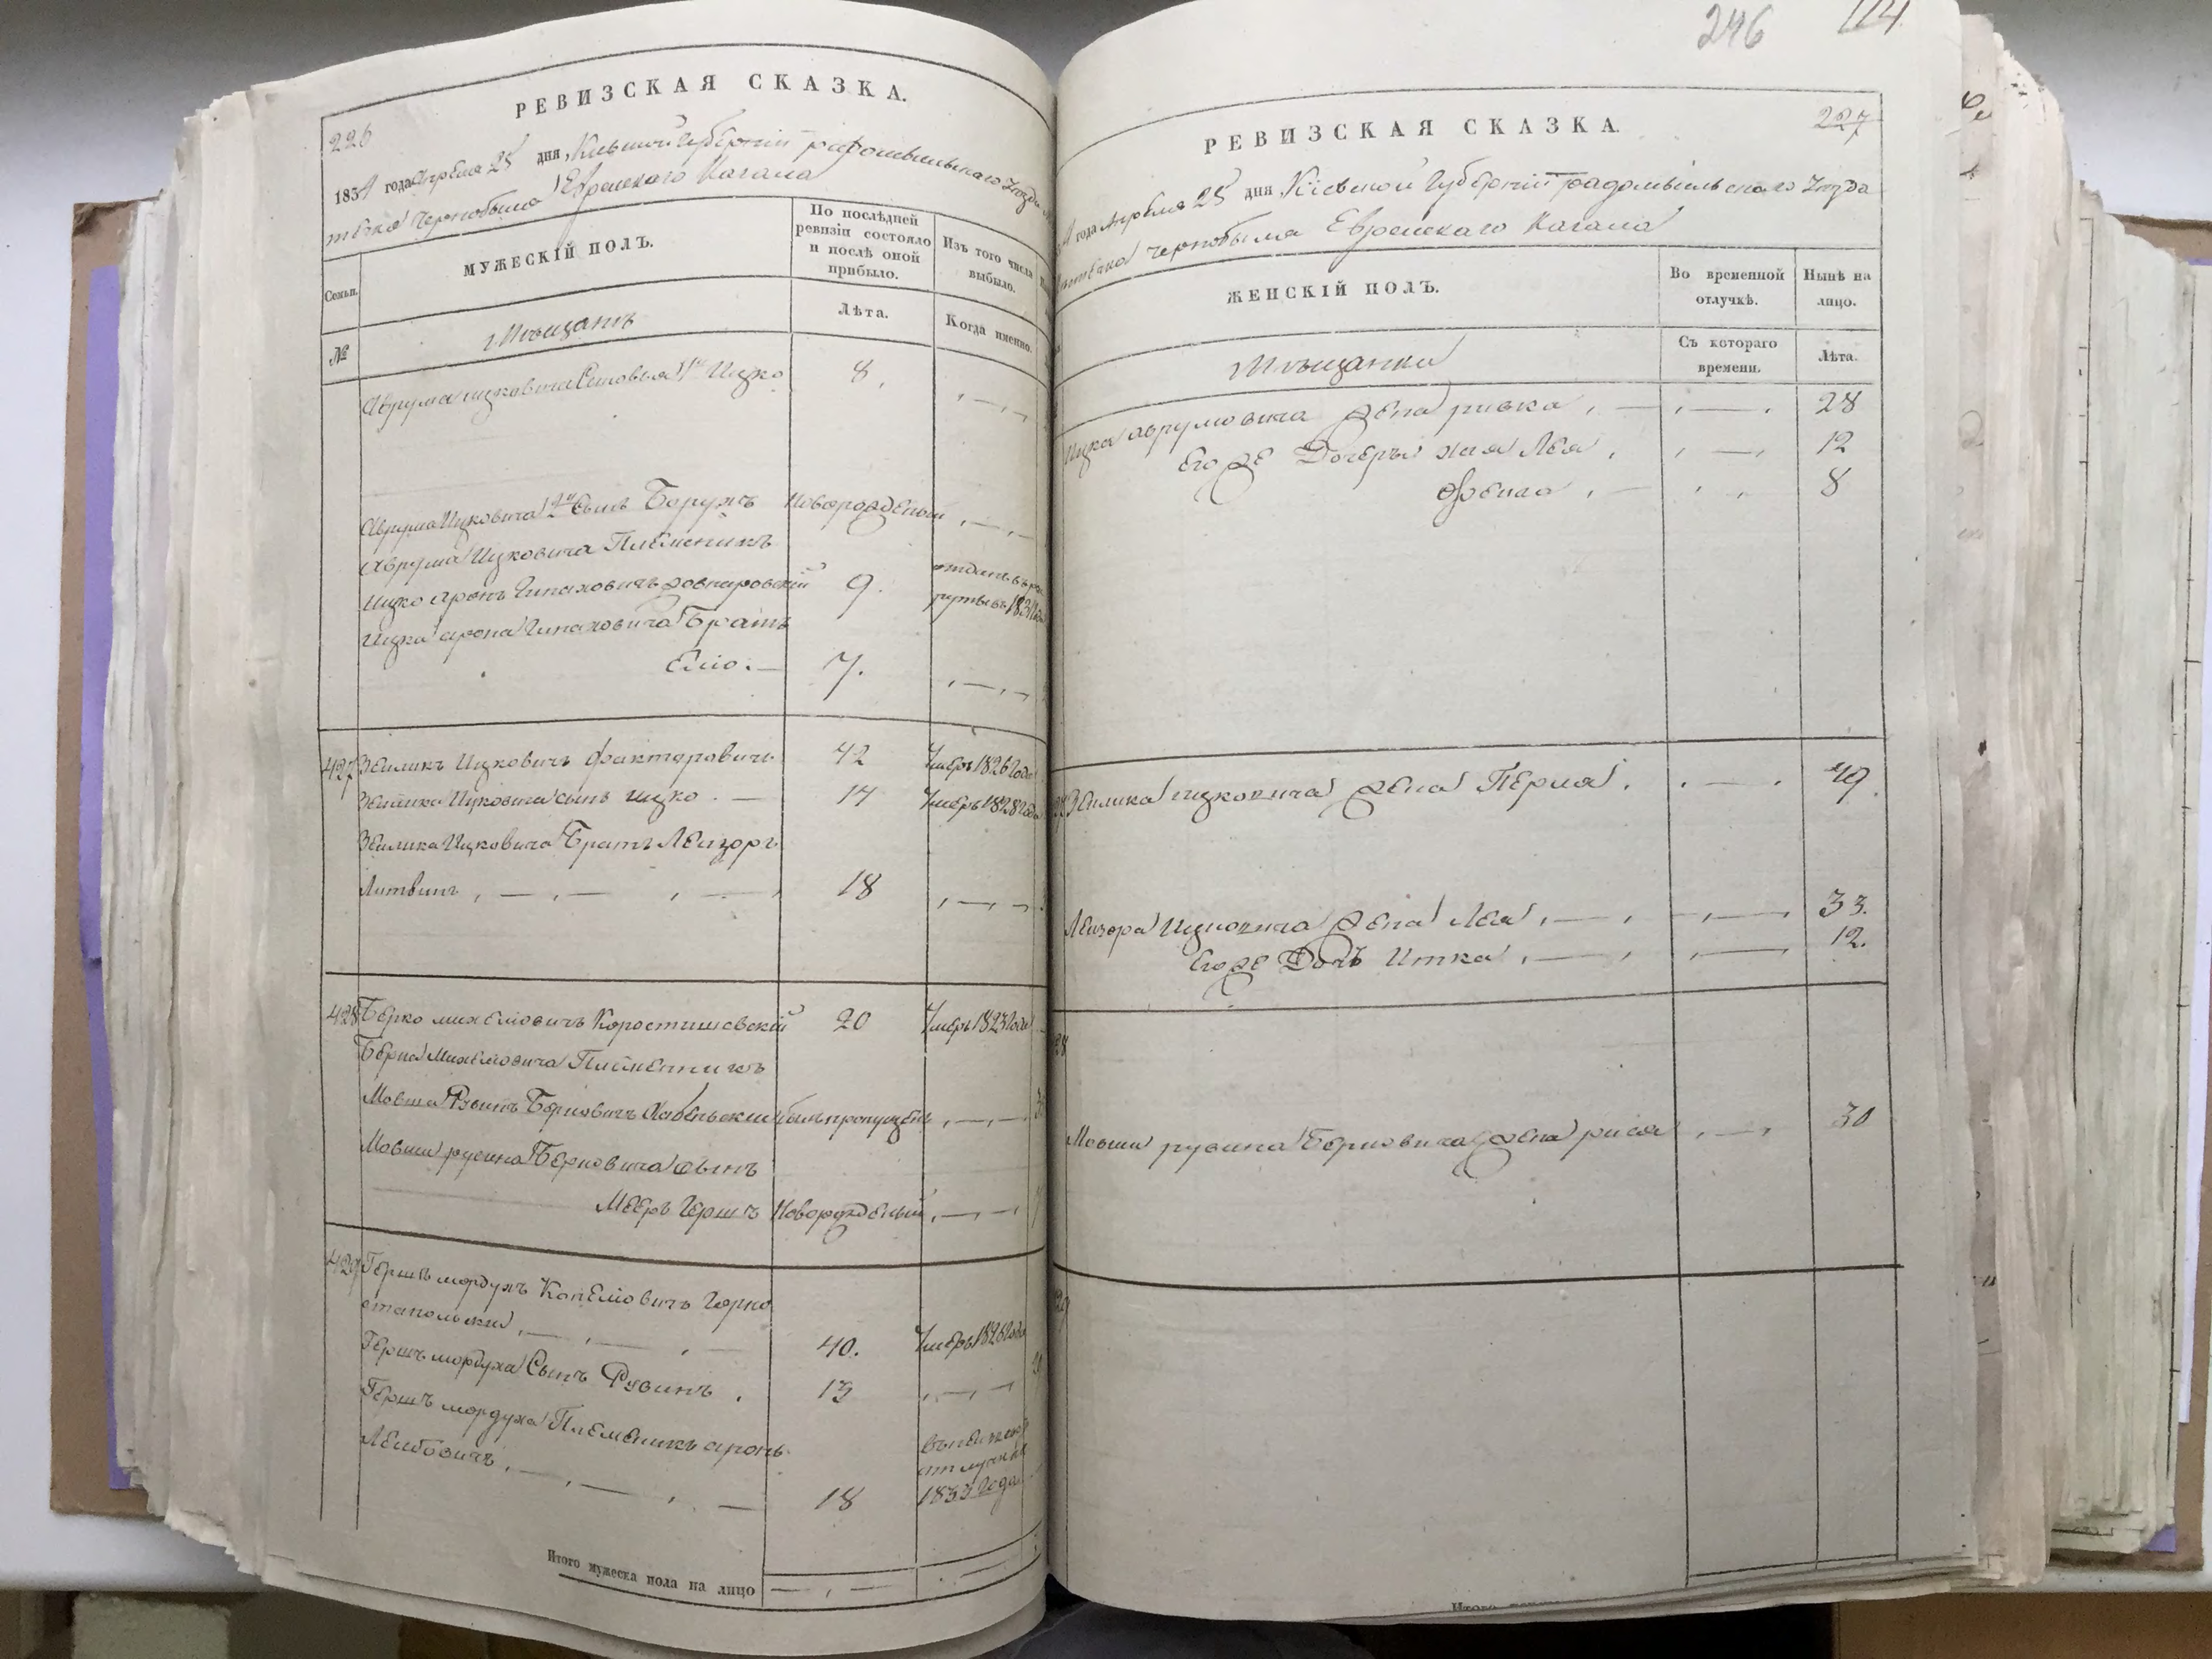 226
РЕВИЗСКАЯ СКАЗКА.
1834 года Апреля 25 дня Киевской Губернии радомысльского Уезда
течка Чернобыля Еврейского Кагала
Семьи.
МУЖЕСКІЙ ПОЛЪ.
По послѣдней ревизіи состояло и послѣ оной прибыло.
Изъ того числа выбыло.
№
Мѣщанъ
Лѣта.
Когда именно.
Аврума Ицковича Сыновья 1й Ицко 8,
Аврума Ицковича 2й Сынъ Борухъ Новорожденый
Аврума Ицковича Племеникъ
Ицко Аронъ 9. отданъ въ рекруты въ 1831 году
Ицка Арона Братъ
Елio. — 7.
427 Зейликъ Ицковичъ Факторовичъ 42 Умеръ 1826 года
Зейлика Ицковича сынъ Ицко. — 14 Умеръ 1828 года
Зейлика Ицковича Братъ Лейзоръ
Литвинъ 18
428 Берко Михелiовичъ Коростишевскій 20 Умеръ 1823 года
Берка Михелiовича Племенникъ
Мовша Рувинъ Берковичъ Хабенскій былъ пропущенъ
Мовши рувина Берковича сынъ
Мееръ Гершъ Новорожденый
429 Гершъ мордухъ Копелiовичъ Горно
стапольскiй 40. Умеръ 1826 года
Гершъ мордуха Сынъ Рувинъ. 13
Гершъ мордуха Племеникъ аронъ
Лейбовичъ 18 отлучке 1833 года
Итого мужеска пола на лицо
246 114
227
РЕВИЗСКАЯ СКАЗКА.
года Апреля 25 дня Кіевской Губерніи радомысльского Уезда
течка чернобыля Еврейского Кагала
ЖЕНСКІЙ ПОЛЪ.
Во временной отлучкѣ.
Нынѣ на лицо.
Мѣщанки
Съ котораго времени.
Лѣта.
Ицка аврумовича жена ривка 28
Его же Дочеръи хая Лея 12
Фейга 8
Зейлика ицковича жена Перля. 49.
Лейзора Ицковича жена Лея 33.
Его же Дочь Итка 12.
28
Мовши рувина Берковича жена рися 30
29